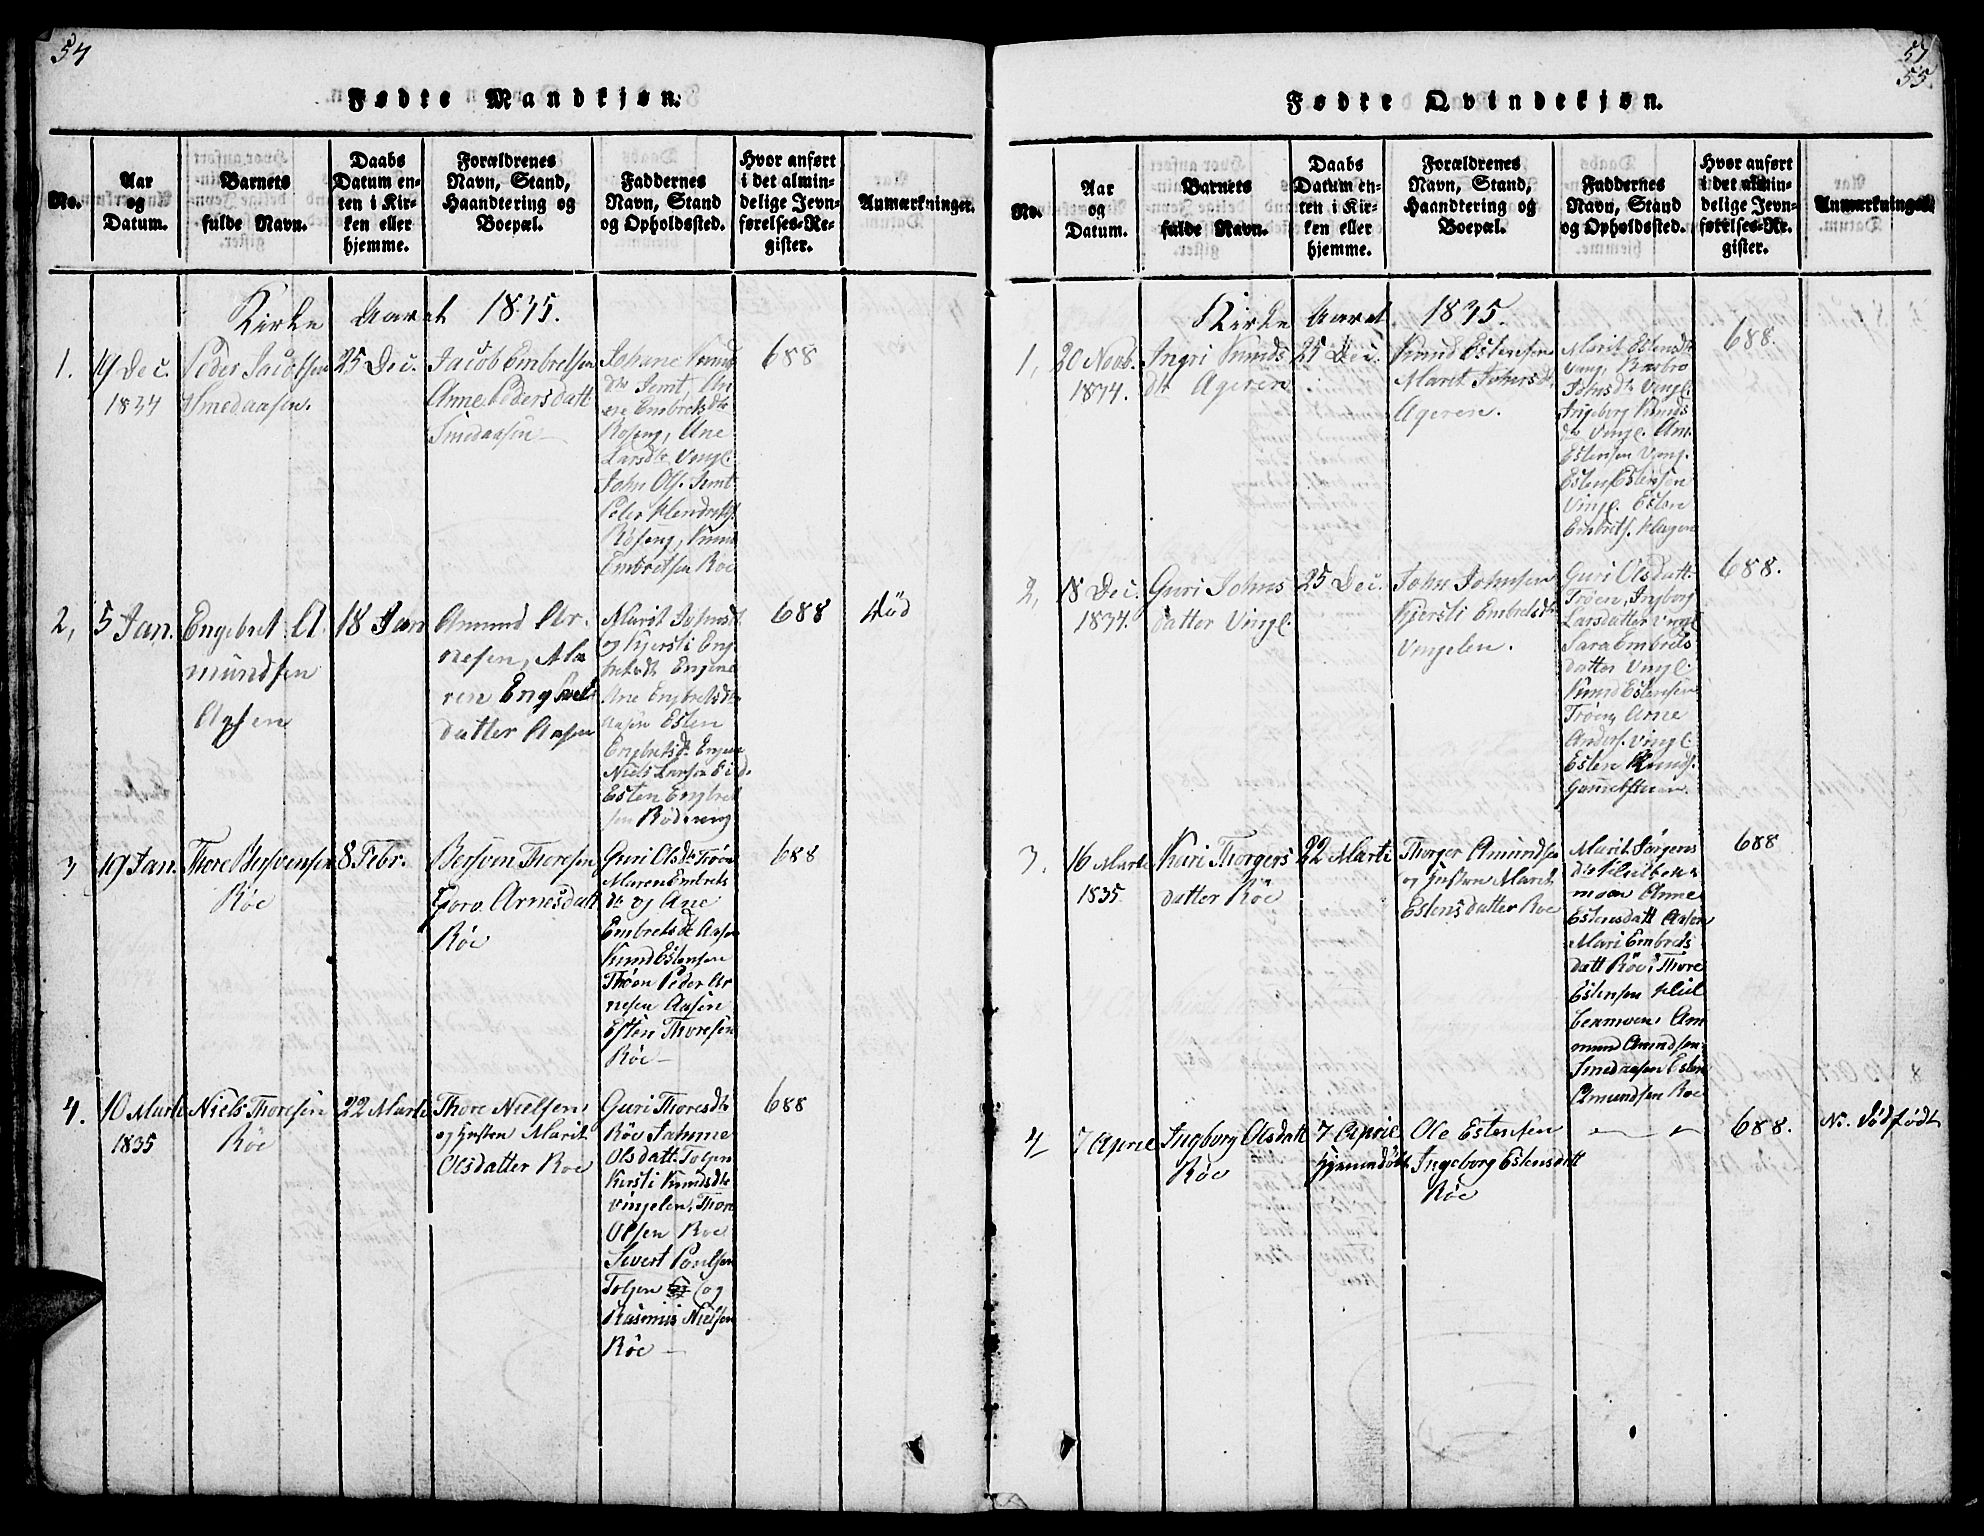 54
Fødte Mandkjøn.
No.
Aar
og
Datum.
Barnets
fulde Navn.
Daabs
Datum en-
ten i Kir-
ken eller
hjemme.
Forældrenes
Navn, Stand,
Haandtering og
Boepæl.
Faddernes
Navn, Stand
og Opholdssted.
Hvor anført
i det almin-
delige Jevn-
førelses-Re-
gister.
Anmærkninger.
Kirke Aaret 1835.
1.
19 Dec.
1834
Peder Jacobsen
Smedaasen.
25 Dec.
Jacob Embretsen
Anne Pedersdatt
Smedaasen
Johane Knud
dtr Semt
Embretsdtr
Roseng, Ane
Larsdtr Vingl.
John Ols. Semt
Peder Hendriks.
Roseng, Knud
Embretsen Røe
688
2,
5 Jan.
Engebret A.
mundsen
Aasen
18 Jan
Amund Ar.
nesen, Ma
ren Engbrets
datter Aasen
Marit Johnsdt
og Kjersti Eng
bretsdt Engene
Ane Engbretsdtr
Aasen Esten
Engbretsdt Engene
Niels Larsen Eid.
Esten Engbret
sen Rødseng
688
Død
3
19 Jan.
Thore Bersvensen
Røe
8 Febr.
Bersven Thoresen
Goro Arnesdatt
Røe
Guri Olsdtr Trøen
Maren Embrets
dtr og Ane
Embretsdt Aasen
Knud Estensen
Trøen Peder Ar
nesen Aasen
Esten Thoresen
Røe
688
4.
10 Marti
1835
Niels Thoresen
Røe
22 Marti
Thore Nielsen
og Hustru Marit
Olsdatter Røe
Guri Thoresdtr
Røe
Olsdatt. Tolgen
Kirsti Knudsdtr
Vingelen, Thore
Olsen Røe
Sivert Poulsen
Tolgen og
Rasmus Nielsen
Røe
688
57
55
Fødte Qvindekjøn.
No.
Aar
og
Datum.
Barnets
fulde Navn.
Daabs
Datum en-
ten i Kir-
ken eller
hjemme.
Forældrenes
Navn, Stand,
Haandtering og
Boepæl.
Faddernes
Navn, Stand
og Opholdssted.
Hvor anført
i det almin-
delige Jevn-
førelses-Re-
gister.
Anmærkninger.
Kirke Aaret 1835.
1,
20 Novb.
1834.
Ingri Knuds
dt Ageren
25 Dec.
Knud Estensen
Maret Johnsdt.
Ageren.
Marit Estensdtr
Ving, Barbro
Johnsdtr Vingl.
Ingeborg Knuds
dtr Vingl. Am.
Estensen Ving.
Esten Estensen
Vingl. Esten
Embrets. Hagen
688.
2,
18 Dec.
1834.
Guri Johns
datter Vingl.
25 Dec.
John Johnsen
Kjersti Embretsdtr
Vingelen.
Guri Olsdatt.
Trøen, Ingborg
Larsdatter Vingl
Sara Embrets
datter Vingl.
Knud Estensen
Trøen, Arne
Anders. Vingl.
Esten Knuds.
688.
3.
16 Marti
1835
Kari Thorgers
datter Røe
22 Marti
Thorger Amundsen
og Hustru Marit
Estensdatter Røe
Marit Jørgens
dtr
moen Anne
Estensdatt Aasen
Mari Embrets
datt Røe, Thore
Estensen
Am
mund Amundsen
Smedaasen Esten
Amundsen Røe
688
4
7 April
Ingborg Olsdatt
Røe
7 April
hjemmedøbt
Ole Estensen
Ingeborg Estensdatt
Røe
688.
No. Dødfødt